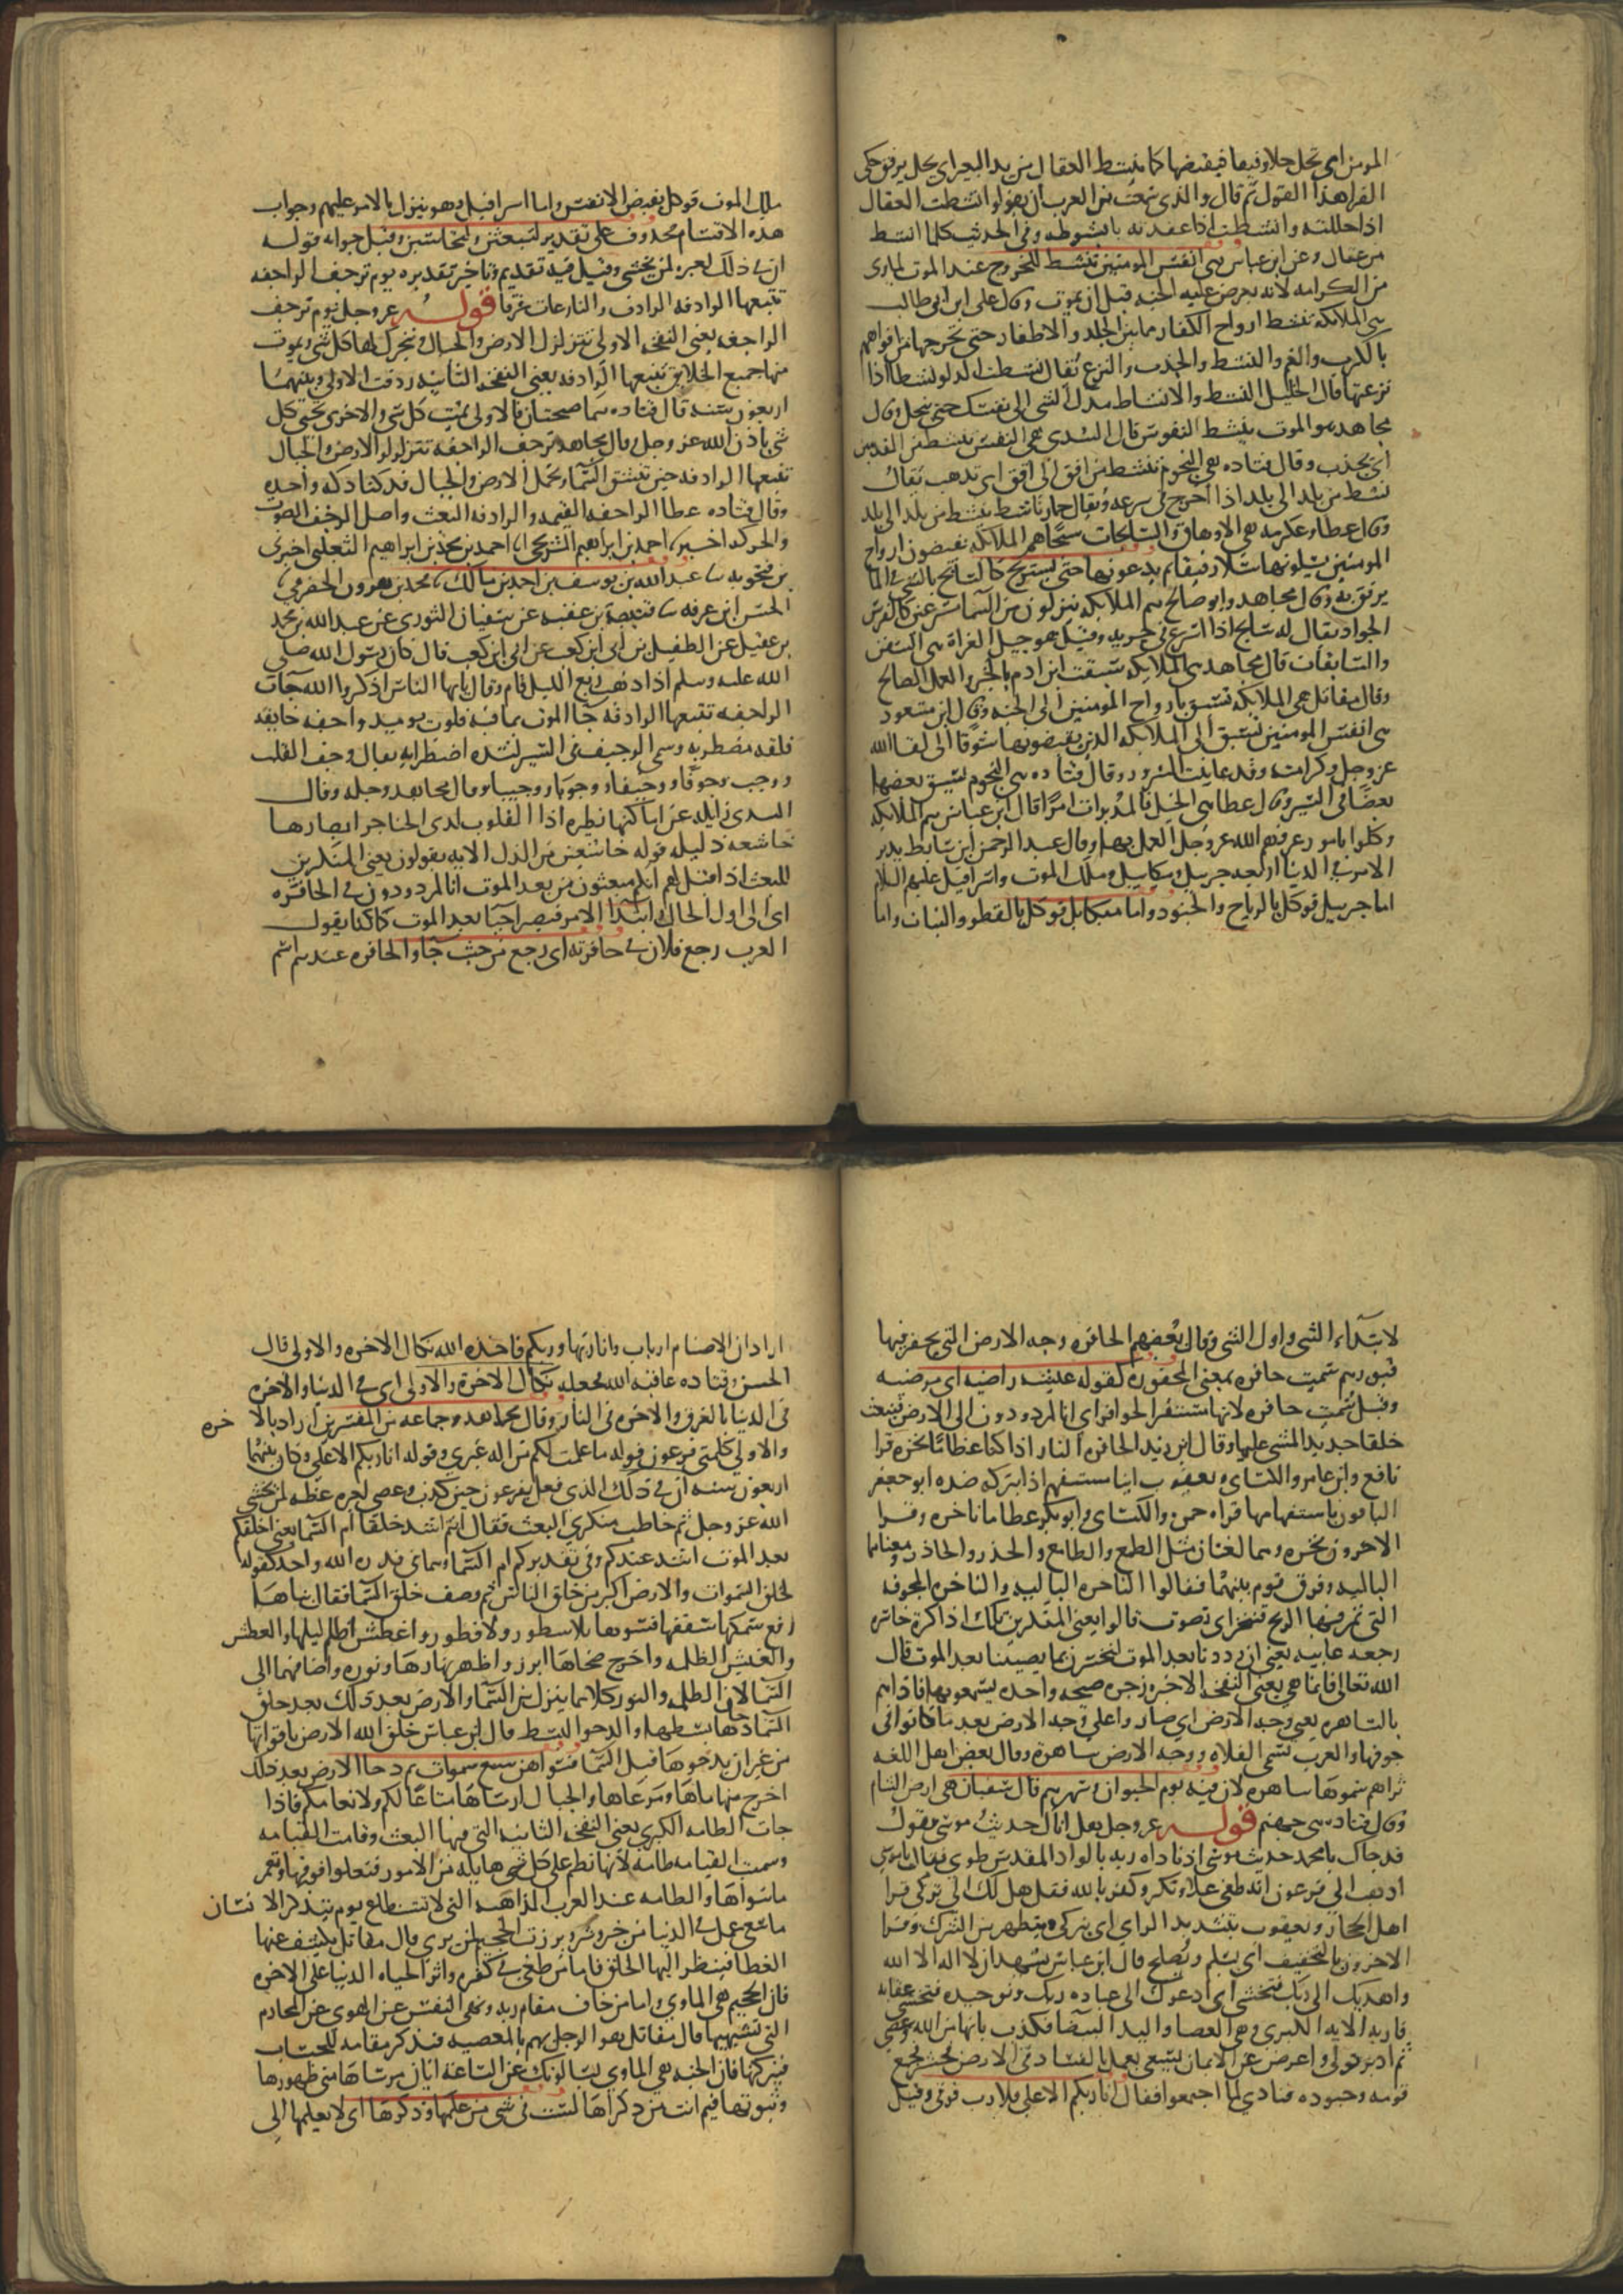 المومن اي تحل حلا رفيقا فيقبضها كما ينشط العقال من يد البعير اي يحل برفق حكى
الفرا هذا القول ثم قال والذي سمعت من العرب ان يقولوا انشطت العقال
اذا حللته وانشطته اذا عقدته بانشوطه وفي الحديث كانما انشط
من عقال وعن ابن عباس هي انفس المومنين تنشط للخروج عند الموت لما ترى
من الكرامه لانه يعرض عليه الجنه قبل ان يموت وقال علي ابن ابي طالب
هي الملايكه تنشط ارواح الكفار مما بين الجلد والاظفار حتى تخرجها من افواههم
بالكرب والغم والنشط والجذب والنزع يقال نشطت الدلو نشطا اذا
نزعتها قال الخليل النشط والانشاط مدك الشي الى نفسك حتى ينحل وقال
مجاهد هو الموت ينشط النفوس قال السدي هي النفس تنشط من القدمين
اي تجذب وقال قتاده هي النجوم تنشط من افق الى افق اي تذهب يقال
نشط من بلد الى بلد اذا خرج في سرعه ويقال حمار ناشط ينشط من بلد الى بلد
وقال عطا وعكرمه هي الاوهاق والسابحات سبحا هم الملايكه يقبضون ارواح
المومنين يسلونها سلا رفيقا ثم يدعونها حتى تستريح كالسابح بالشي في الما
يرفق به وقال مجاهد وابو صالح هم الملايكه ينزلون من السما مسرعين كالفرس
الجواد يقال له سابح اذا اسرع في جريه وقيل هو خيل الغزاة هي السفن
والسابقات قال مجاهد هي الملايكه سبقت ابن ادم بالخير والعمل الصالح
وقال مقاتل هي الملايكه تسبق بارواح المومنين الى الجنه وقال ابن مسعود
هي انفس المومنين تسبق الى الملايكه الذين يقبضونها شوقا الى لقا الله
عز وجل وكرامته وقد عاينت السرور وقال قتاده هي النجوم تسبق بعضها
بعضا في السير وقال عطا هي الخيل فالمدبرات امرا قال ابن عباس هم الملايكه
وكلوا بامور عرفهم الله عز وجل العمل بها وقال عبد الرحمن ابن سابط يدبر
الامر في الدنيا اربعه جبريل وميكاييل وملك الموت واسرافيل عليهم السلام
اما جبريل فوكل بالرياح والجنود واما ميكاييل فوكل بالقطر والنبات واما
ملك الموت فوكل بقبض الانفس واما اسرافيل فهو ينزل بالامر عليهم وجواب
هذه الاقسام محذوف على تقدير لتبعثن ولتحاسبن وقيل جوابه قوله
ان في ذلك لعبره لمن يخشى وقيل فيه تقديم وتاخير تقديره يوم ترجف الراجفه
تتبعها الرادفه الرادف والنازعات غرقا قوله عز وجل يوم ترجف
الراجفه يعني النفخه الاولى تتزلزل الارض والجبال وتحرك لها كل شي ويموت
منها جميع الخلايق تتبعها الرادفه يعني النفخه الثانيه ردفت الاولى وبينهما
اربعون سنه قال قتاده هما صيحتان فالاولى تميت كل شي والاخرى تحيي كل
شي باذن الله عز وجل وقال مجاهد ترجف الراجفه تتزلزل الارض والجبال
تتبعها الرادفه حين تنشق السما وتحمل الارض والجبال فدكتا دكه واحده
وقال قتاده عطا الراجفه القيمه والرادفه البعث واصل الرجفه الصوت
والحركه اخبرنا احمد بن ابرهيم الشريحي انا احمد بن محمد بن ابراهيم الثعلبي اخبرني
بن فنجويه نا عبد الله بن يوسف بن احمد بن مالك نا محمد بن هرون الحضرمي نا
الحسن ابن عرفه نا قبيصة بن عقبه عن سفيان الثوري عن عبد الله بن محمد
بن عقيل عن الطفيل بن ابي ابن كعب عن ابي ابن كعب قال كان رسول الله صلى
الله عليه وسلم اذا ذهب ربع الليل قام وقال يا يها الناس اذكروا الله جات
الراجفه تتبعها الرادفه جا الموت بما فيه قلوب يوميد واجفه خايفه
قلقه مضطربه وسمي الوجيف في السير لشده اضطرابه يقال وجف القلب
ووجب وجوفا ووجيفا ووجوبا ووجيبا وقال مجاهد وجله وقال
السدي زايله عن اماكنها نظيره اذا القلوب لدى الحناجر ابصارها
خاشعه ذليله قوله خاشعين من الذل الايه يقولون يعني المنكرين
للبعث اذا قيل لهم انكم مبعثون من بعد الموت انا لمردودون في الحافره
اي الى اول الحال وابتدا الامر فنصير احيا بعد الموت كما كنا يقول
العرب رجع فلان في حافرته اي رجع من حيث جا والحافره عندهم اسم
لابتداء الشي واول الشي وقال بعضهم الحافره وجه الارض التي يحفر فيها
قبورهم سميت حافره بمعنى المحفوره كقوله عيشه راضيه اي مرضيه
وقيل سميت حافره لانها مستقر الحوافر اي انا لمردودون الى الارض فنبعث
خلقا جديدا نمشي عليها وقال ابن زيد الحافره النار اذا كنا عظاما نخره قرا
نافع وابن عامر والكساي ويعقوب اينا مستفهم اذا بتركه ضده ابو جعفر
الباقون باستفهامهما قراه حمزه والكساي وابو بكر عظاما ناخره وقرا
الاخرون نخره وهما لغتان مثل الطمع والطامع والحذر والحاذر ومعناهما
الباليه وفرق قوم بينهما فقالوا الناخره الباليه والناخره المجوفه
التي تمر فيها الريح فتنخر اي تصوت قالوا يعني المنكرين تلك اذا كرة خاسره
رجعه غايبه يعني ان رددنا بعد الموت لنخسرن بما يصيبنا بعد الموت قال
الله تعالى فانما هي يعني النفخه الاخيره زجره صيحه واحده يسمعونها فاذا هم
بالساهره يعني وجه الارض اي صاروا على وجه الارض بعد ما كانوا في
جوفها والعرب تسمي الفلاه ووجه الارض ساهرة وقال بعض اهل اللغه
تراهم سموها ساهره لان فيه نوم الحيوان وسهرهم قال سفيان هي ارض الشام
وقال قتاده هي جهنم قوله عز وجل هل اتاك حديث موسى يقول
قد جاك يا محمد حديث موسى اذ ناداه ربه بالواد المقدس طوى فقال يا موسى
اذهب الى فرعون انه طغى علا وتكبر وكفر بالله فقل هل لك الى ان تزكى قرا
اهل الحجاز ويعقوب بتشديد الزاي اي تتزكى وتتطهر من الشرك وقرا
الاخرون بالتخفيف اي تسلم وتصلح قال ابن عباس تشهد ان لا اله الا الله
واهديك الى ربك فتخشى اي ادعوك الى عباده ربك وتوحيده فتخشى عقابه
فاراه الايه الكبرى وهي العصا واليد البيضا فكذب بانها من الله وعصى
ثم ادبر تولى واعرض عن الايمان يسعى يعمل بالفساد في الارض فحشر فجمع
قومه وجنوده فنادى لما اجتمعوا فقال انا ربكم الاعلى فلا رب فوقي وقيل
اراد ان الاصنام ارباب وانا ربها وربكم فاخذه الله نكال الاخره والاولى قال
الحسن وقتاده عاقبه الله فجعله نكال الاخرة والاولى اي في الدنيا والاخره
في الدنيا بالغرق والاخره في النار وقال مجاهد وجماعه من المفسرين اراد بالاخره
والاولى كلمتي فرعون قوله ما علمت لكم من اله غيري وقوله انا ربكم الاعلى وكان بينهما
اربعون سنه ان في ذلك الذي فعل بفرعون حين كذب وعصى لعبره عظه لمن يخشى
الله عز وجل ثم خاطب منكري البعث فقال اانتم اشد خلقا ام السما يعني اخلقكم
بعد الموت اشد عندكم وفي تقديركم ام السما وهما في قدره الله واحد كقوله
لخلق السموات والارض اكبر من خلق الناس ثم وصف خلق السما فقال بناها
رفع سمكها سقفها فسوها بلا سطور ولا فطور واغطش اظلم ليلها والغطش
والغبش الظلمه واخرج ضحاها ابرز واظهر نهارها ونوره واضافهما الى
السما لان الظلمه والنور كلاهما ينزل من السما والارض بعد ذلك بعد خلق
السما دحاها بسطها والدحو البسط قال ابن عباس خلق الله الارض باقواتها
من غير ان يدحوها قبل السما فسواهن سبع سموات ثم دحا الارض بعد ذلك
اخرج منها ماها ومرعاها والجبال ارساها متاعا لكم ولانعامكم فاذا
جات الطامه الكبرى يعني النفخه الثانيه التي فيها البعث وقامت القيامه
وسميت القيامه طامه لانها تطم على كل شي هايله من الامور فتعلوا فوقها وتغمر
ما سواها والطامه عند العرب الداهيه التي لا تستطاع يوم يتذكر الانسان
ما سعى عمل في الدنيا من خير وشر وبرزت الجحيم لمن يرى قال مقاتل يكشف عنها
الغطا فينظر اليها الخلق فاما من طغى في كفره واثر الحياه الدنيا على الاخره
فان الجحيم هي الماوى واما من خاف مقام ربه ونهى النفس عن الهوى عن المحارم
التي تشتهيها قال مقاتل هو الرجل يهم بالمعصيه فيذكر مقامه للحساب
فيتركها فان الجنه هي الماوى يسالونك عن الساعة ايان مرساها متى ظهورها
وثبوتها فيم انت من ذكراها لست في شي من علمها وذكرها اي لا يعلمها الي